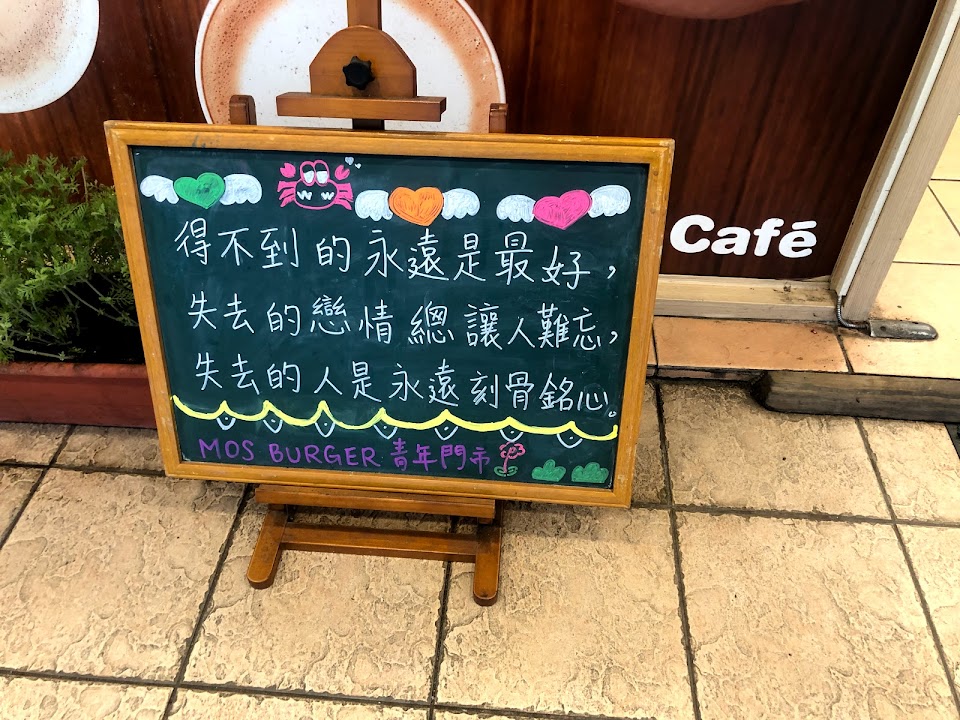 得不到的永遠是最好，
失去的戀情總讓人難忘，
失去的人是永遠刻骨銘心。
MOS BURGER 青年門市
Café